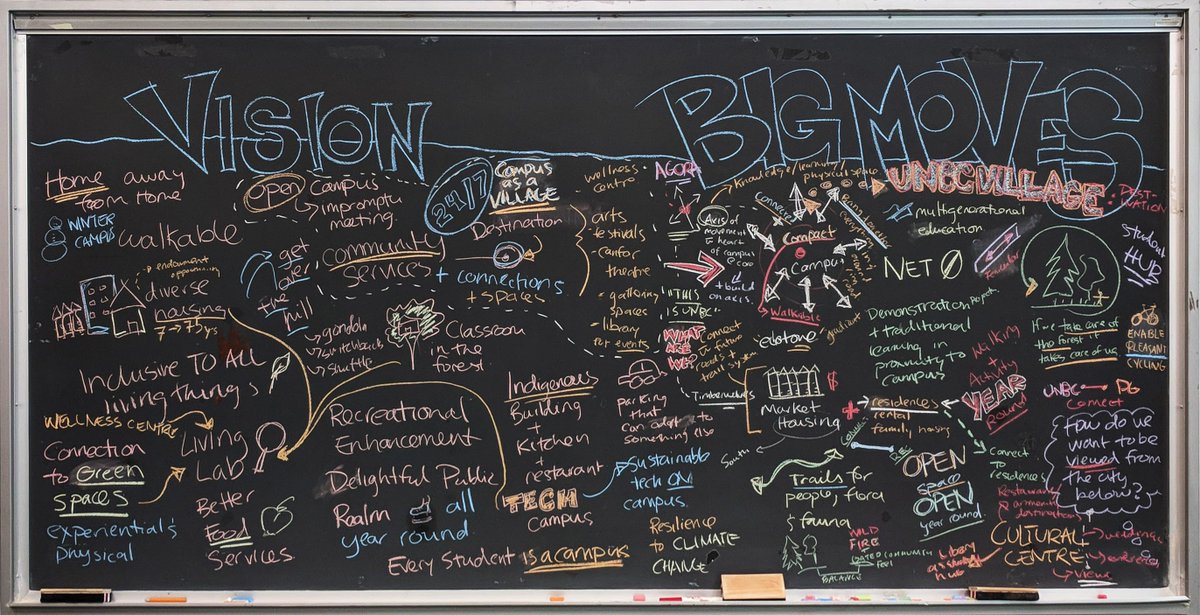 VISION
Home away
from Home
WINTER
CAMPUS
walkable
OPEN
Campus
impromptu
meeting.
24/7
CAMPUS
AS A
VILLAGE
Destination
community
services
+ connections
+ spaces
arts
festivals
canfor
theatre
gathering
spaces
library
for events
wellness
centre
diverse
housing
7 → 75 yrs
get
over
the
hill
gondola
switchback
shuttle
Classroom
in the
forest
Inclusive TO All
living things
WELLNESS CENTRE
Living
Lab
Connection
to Green
spaces
experiential &
physical
Better
Food
Services
Recreational
Enhancement
Delightful Public
Realm all
year round
Every Student is a campus
Indigenous
Building
+
Kitchen
+
restaurant
TECH
Campus
Sustainable
tech ON
campus.
Resilience
to CLIMATE
CHANGE
parking
that
can adapt to
something else
BIG MOVES
AGORA
Knowledge/learning/
physical space
Axis of
movement
to heart
of campus
@ core
+ build
on axis.
"THIS
IS UNBC"
WHAT
ARE
WE?
Connect
to future
roads +
trail system
Timbernectors
Connected
Compact
Campus
Walkable
edotone
gradient
UNBC VILLAGE
DESTINATION
multigenerational
education
NET 0
STUDENT
HUB
Demonstration Projects
+ traditional
learning in
proximity to
campus
Walking
+
Activity
YEAR
Round
If we take care of
the forest it
takes care of us
ENABLE
PLEASANT
CYCLING
Market
Housing
$
+
residences
rental
family, housing
UNBC PG
Connect
How do we
want to be
viewed from
the city
below?
South
Trails for
people, flora
& fauna
OPEN
space
OPEN
year round.
Connect
to
residences
Restaurant
& amenity
destinations
CULTURAL
CENTRE
views
WILD
FIRE
GATED COMMUNITY
feel
BALANCE
Library
as student
hub